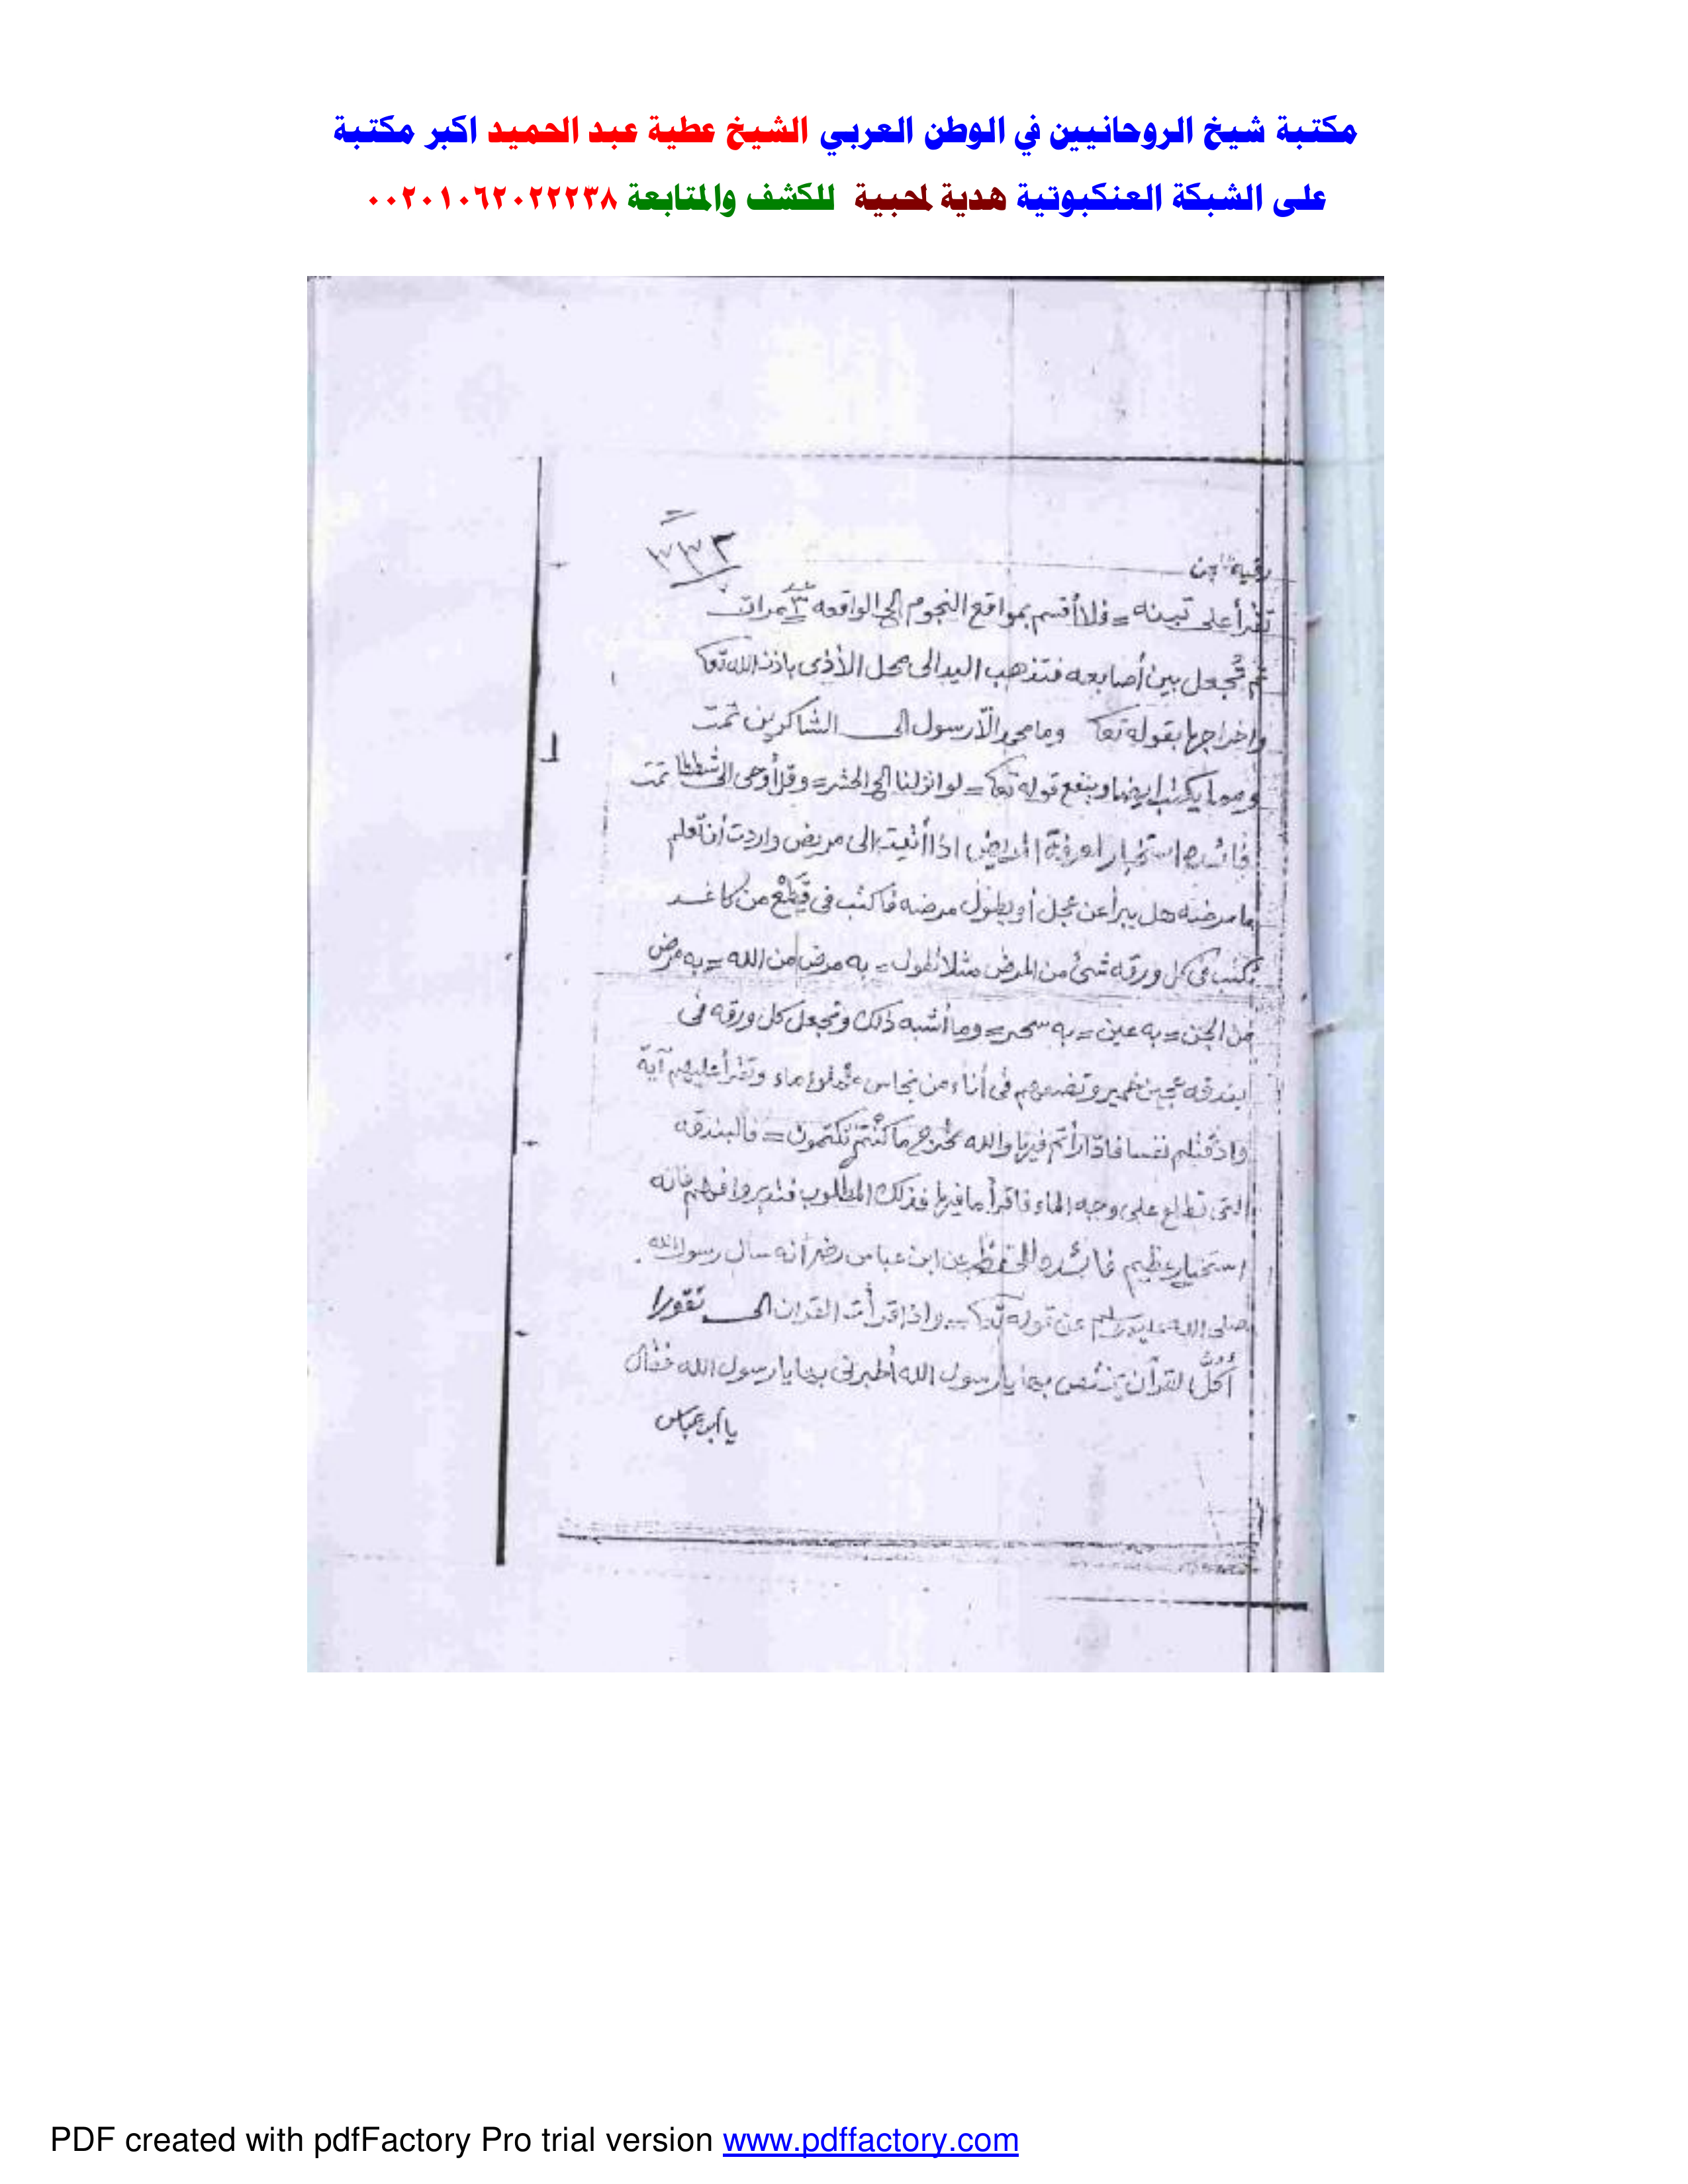 مكتبة شيخ الروحانيين في الوطن العربي الشيخ عطية عبد الحميد اكبر مكتبة
على الشبكة العنكبوتية هدية لمحبية للكشف والمتابعة ٠٠٢٠١٠٦٢٠٢٢٢٣٨
٣٣٢
تقرأ على = فلا أقسم بمواقع النجوم إلى الواقعه ٣ مرات
ثم تجعل بين أصابعه فتذهب اليد الى محل الأذى باذن الله تعا
واخراجها بقوله تعا وما محمد الّا رسول الى الشاكرين تمت
ومما يكتب ايضا وينفع قوله تعا = لو انزلنا إلى الحشر = وقل أوحى الى شططا تمت
فائده استخبار لمعرفة المريض اذا أتيت الى مريض واردت أن تعلم
ما مرضه هل يبرأ عن عجل أو يطول مرضه فاكتب فى قِطَع من كاغد
تكتب فى كل ورقه شئ من المرض مثلا تقول = به مرض من الله = به مرض
من الجن = به عين = به سحر = وما أشبه ذلك وتجعل كل ورقه فى
بندقه عجين خمير وتضعهم فى أناء من نحاس ماء وتقرأ عليهم آية
واذ قتلتم نفسا فادّارأتم فيها والله مُخرج ما كُنْتم تكتمون = فالبندقه
التى تطلع على وجه الماء فاقرأ ما فيها فذلك المطلوب فتدبروا فهم فانه
استخبار عظيم فائده عن ابن عباس رضى أنه سال رسول الله
صلى الله عليه وسلم عن قوله تعا = واذا قرأت القران الى نفورا
أكل القرآن يا رسول الله أخبرنى بها يا رسول الله فقال
يا ابن عباس
PDF created with pdfFactory Pro trial version www.pdffactory.com